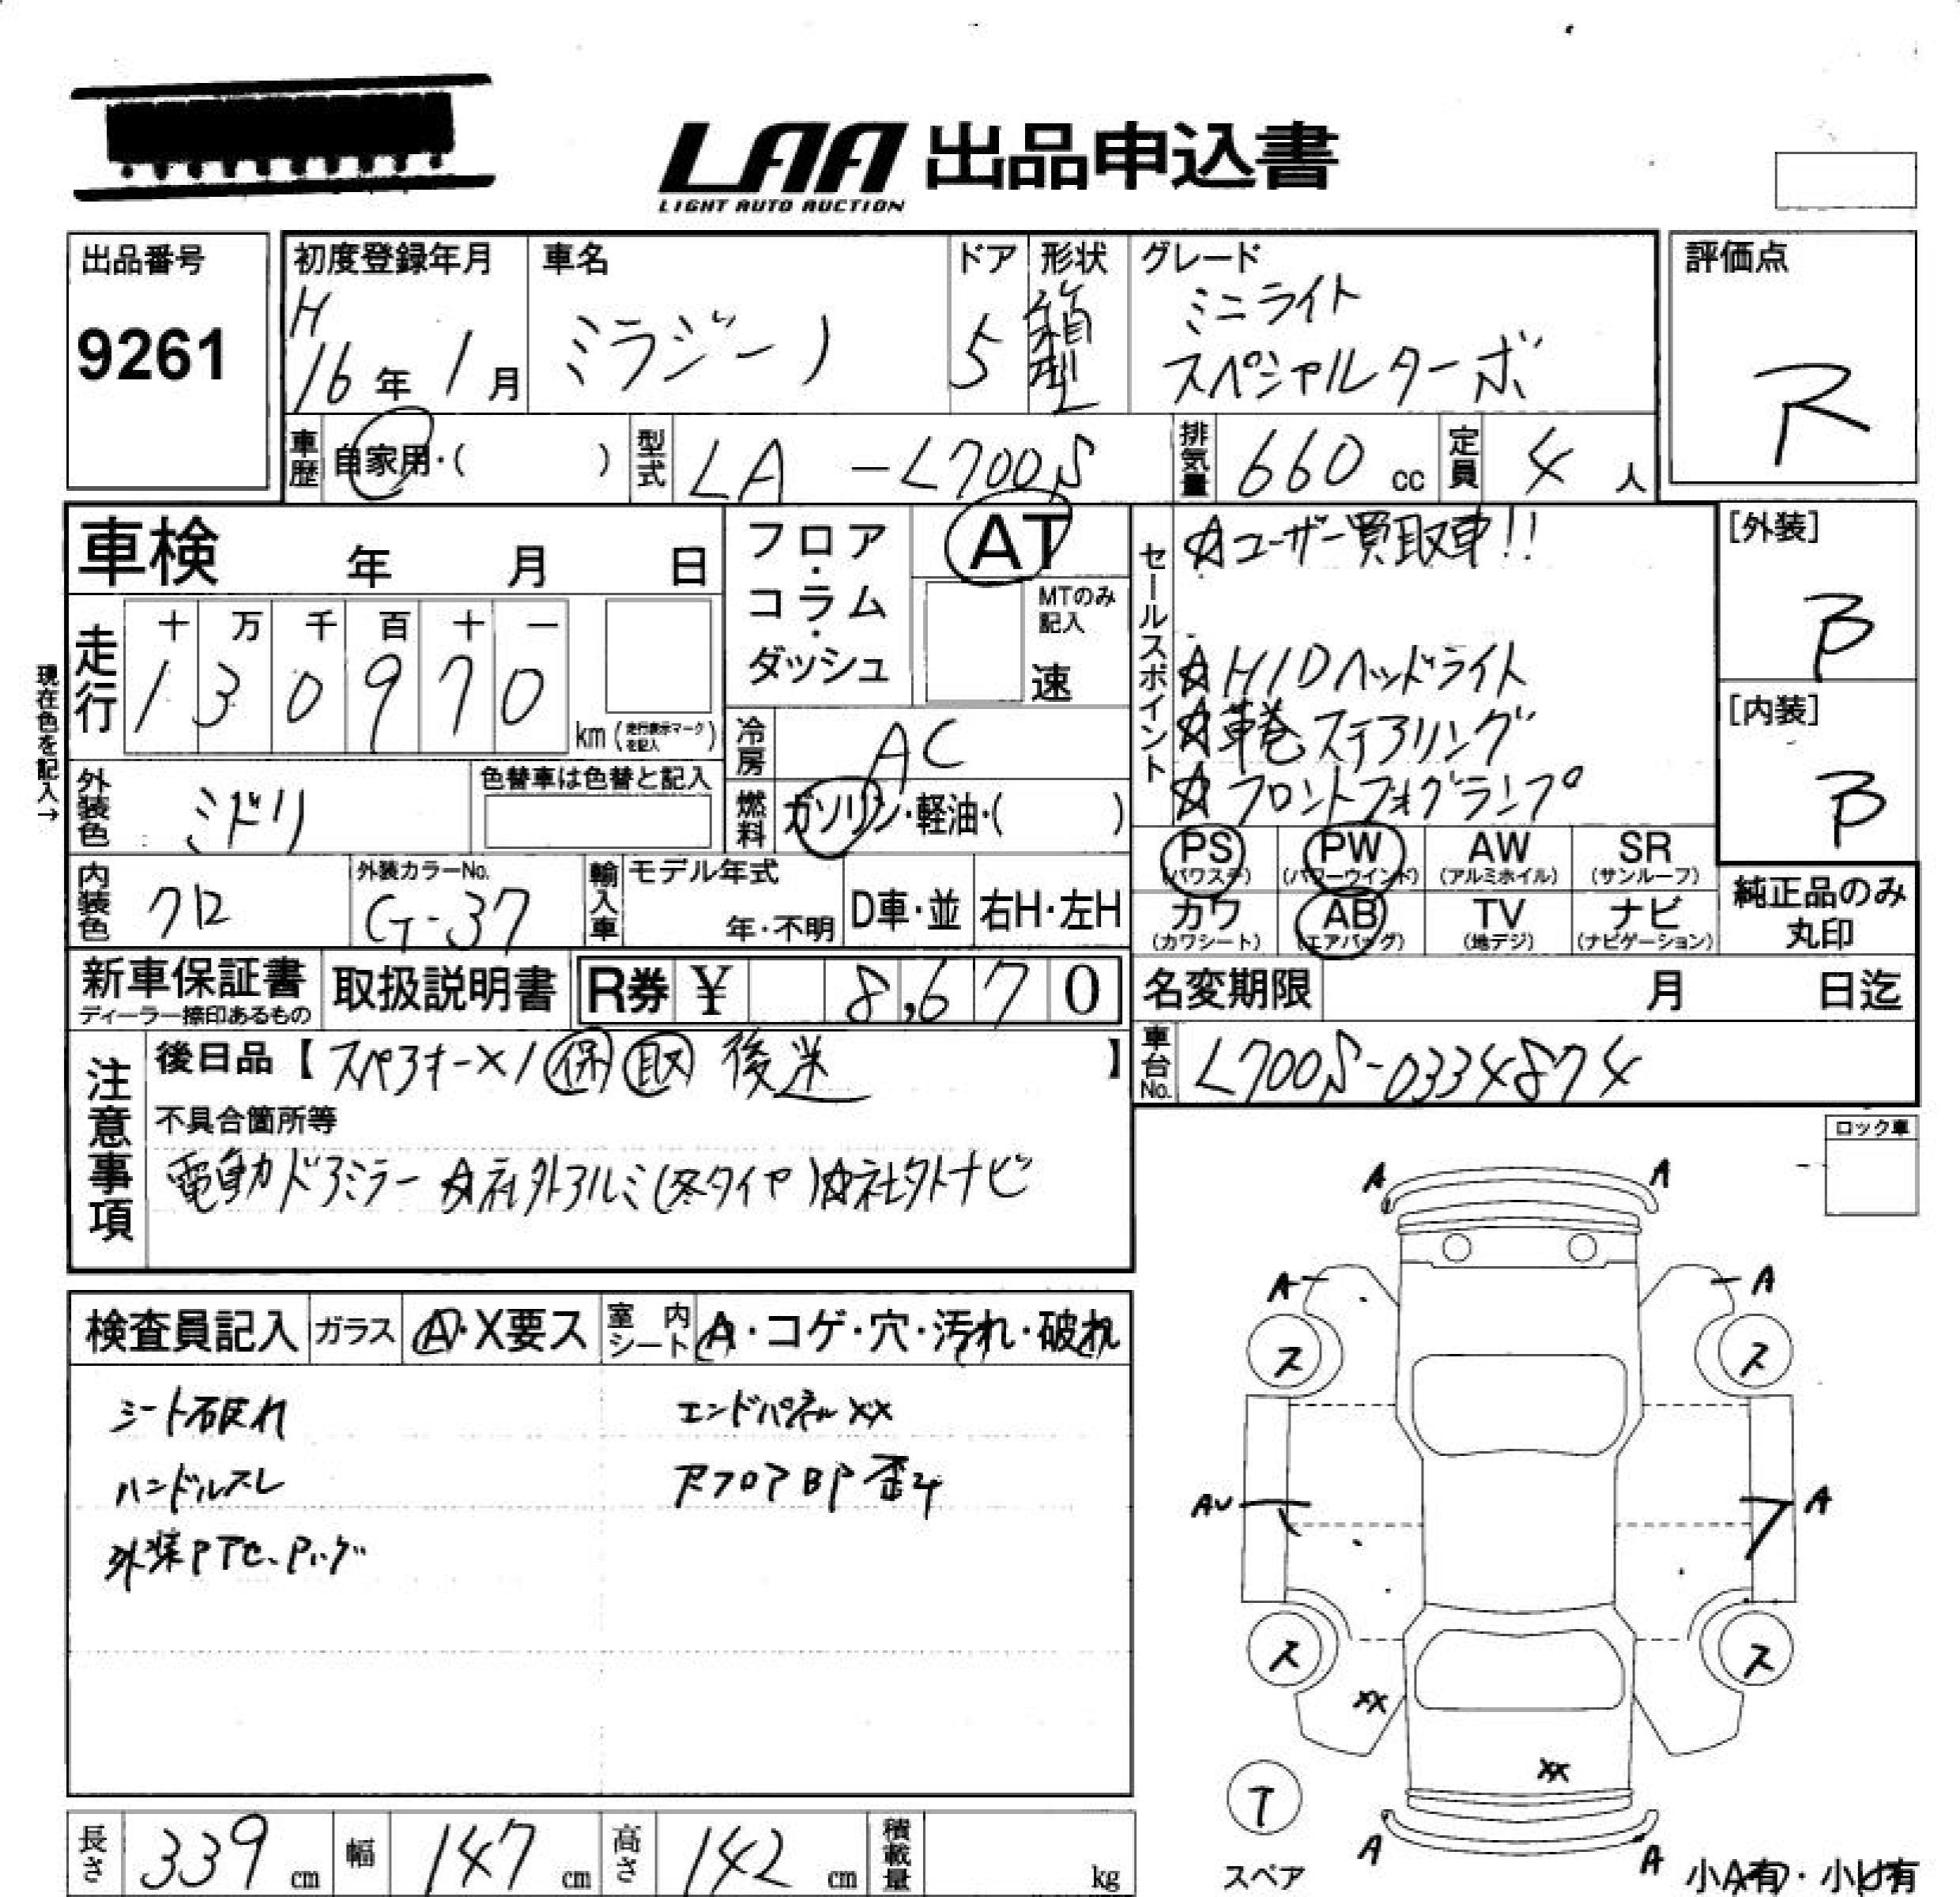 LAA 出品申込書
LIGHT AUTO AUCTION
出品番号
9261
初度登録年月
H
16年 1月
車名
ミラジーノ
ドア
5
形状
箱型
グレード
ミニライト
スペシャルターボ
評価点
R
車歴
自家用・( )
型式
LA-L700S
排気量
660 cc
定員
4 人
車検 年 月 日
フロア・コラム・ダッシュ
AT
MTのみ記入
速
走行
十 万 千 百 十 一
1 3 0 9 7 0
km(走行表示マークを記入)
現在色を記入→
冷房
AC
燃料
ガソリン・軽油・( )
外装色
ミドリ
色替車は色替と記入
内装色
クロ
外装カラーNo.
G-37
輸入車
モデル年式
年・不明
D車・並
右H・左H
セールスポイント
☆ユーザー買取車!!
☆HIDヘッドライト
☆革巻ステアリング
☆フロントフォグランプ
[外装]
B
[内装]
B
PS
(パワステ)
PW
(パワーウインド)
AW
(アルミホイル)
SR
(サンルーフ)
カワ
(カワシート)
AB
(エアバッグ)
TV
(地デジ)
ナビ
(ナビゲーション)
純正品のみ
丸印
新車保証書
ディーラー捺印あるもの
取扱説明書
R券 ¥ 8,670
名変期限 月 日迄
車台No.
L700S-0334874
注意事項
後日品【スペアキー×1 保 取 後送】
不具合箇所等
電動ドアミラー ☆社外アルミ(冬タイヤ)☆社外ナビ
ロック車
検査員記入
ガラス
A・X要ス
室内シート
A・コゲ・穴・汚れ・破れ
シート破れ
エンドパネルXX
ハンドルスレ
Rフロア BP 歪み
外装PTC、Pハゲ
A A
A A
ス ス
AU A
ス ス
XX
XX
T
スペア
A A
小A有・小U有
長さ 339 cm
幅 147 cm
高さ 142 cm
積載量 kg